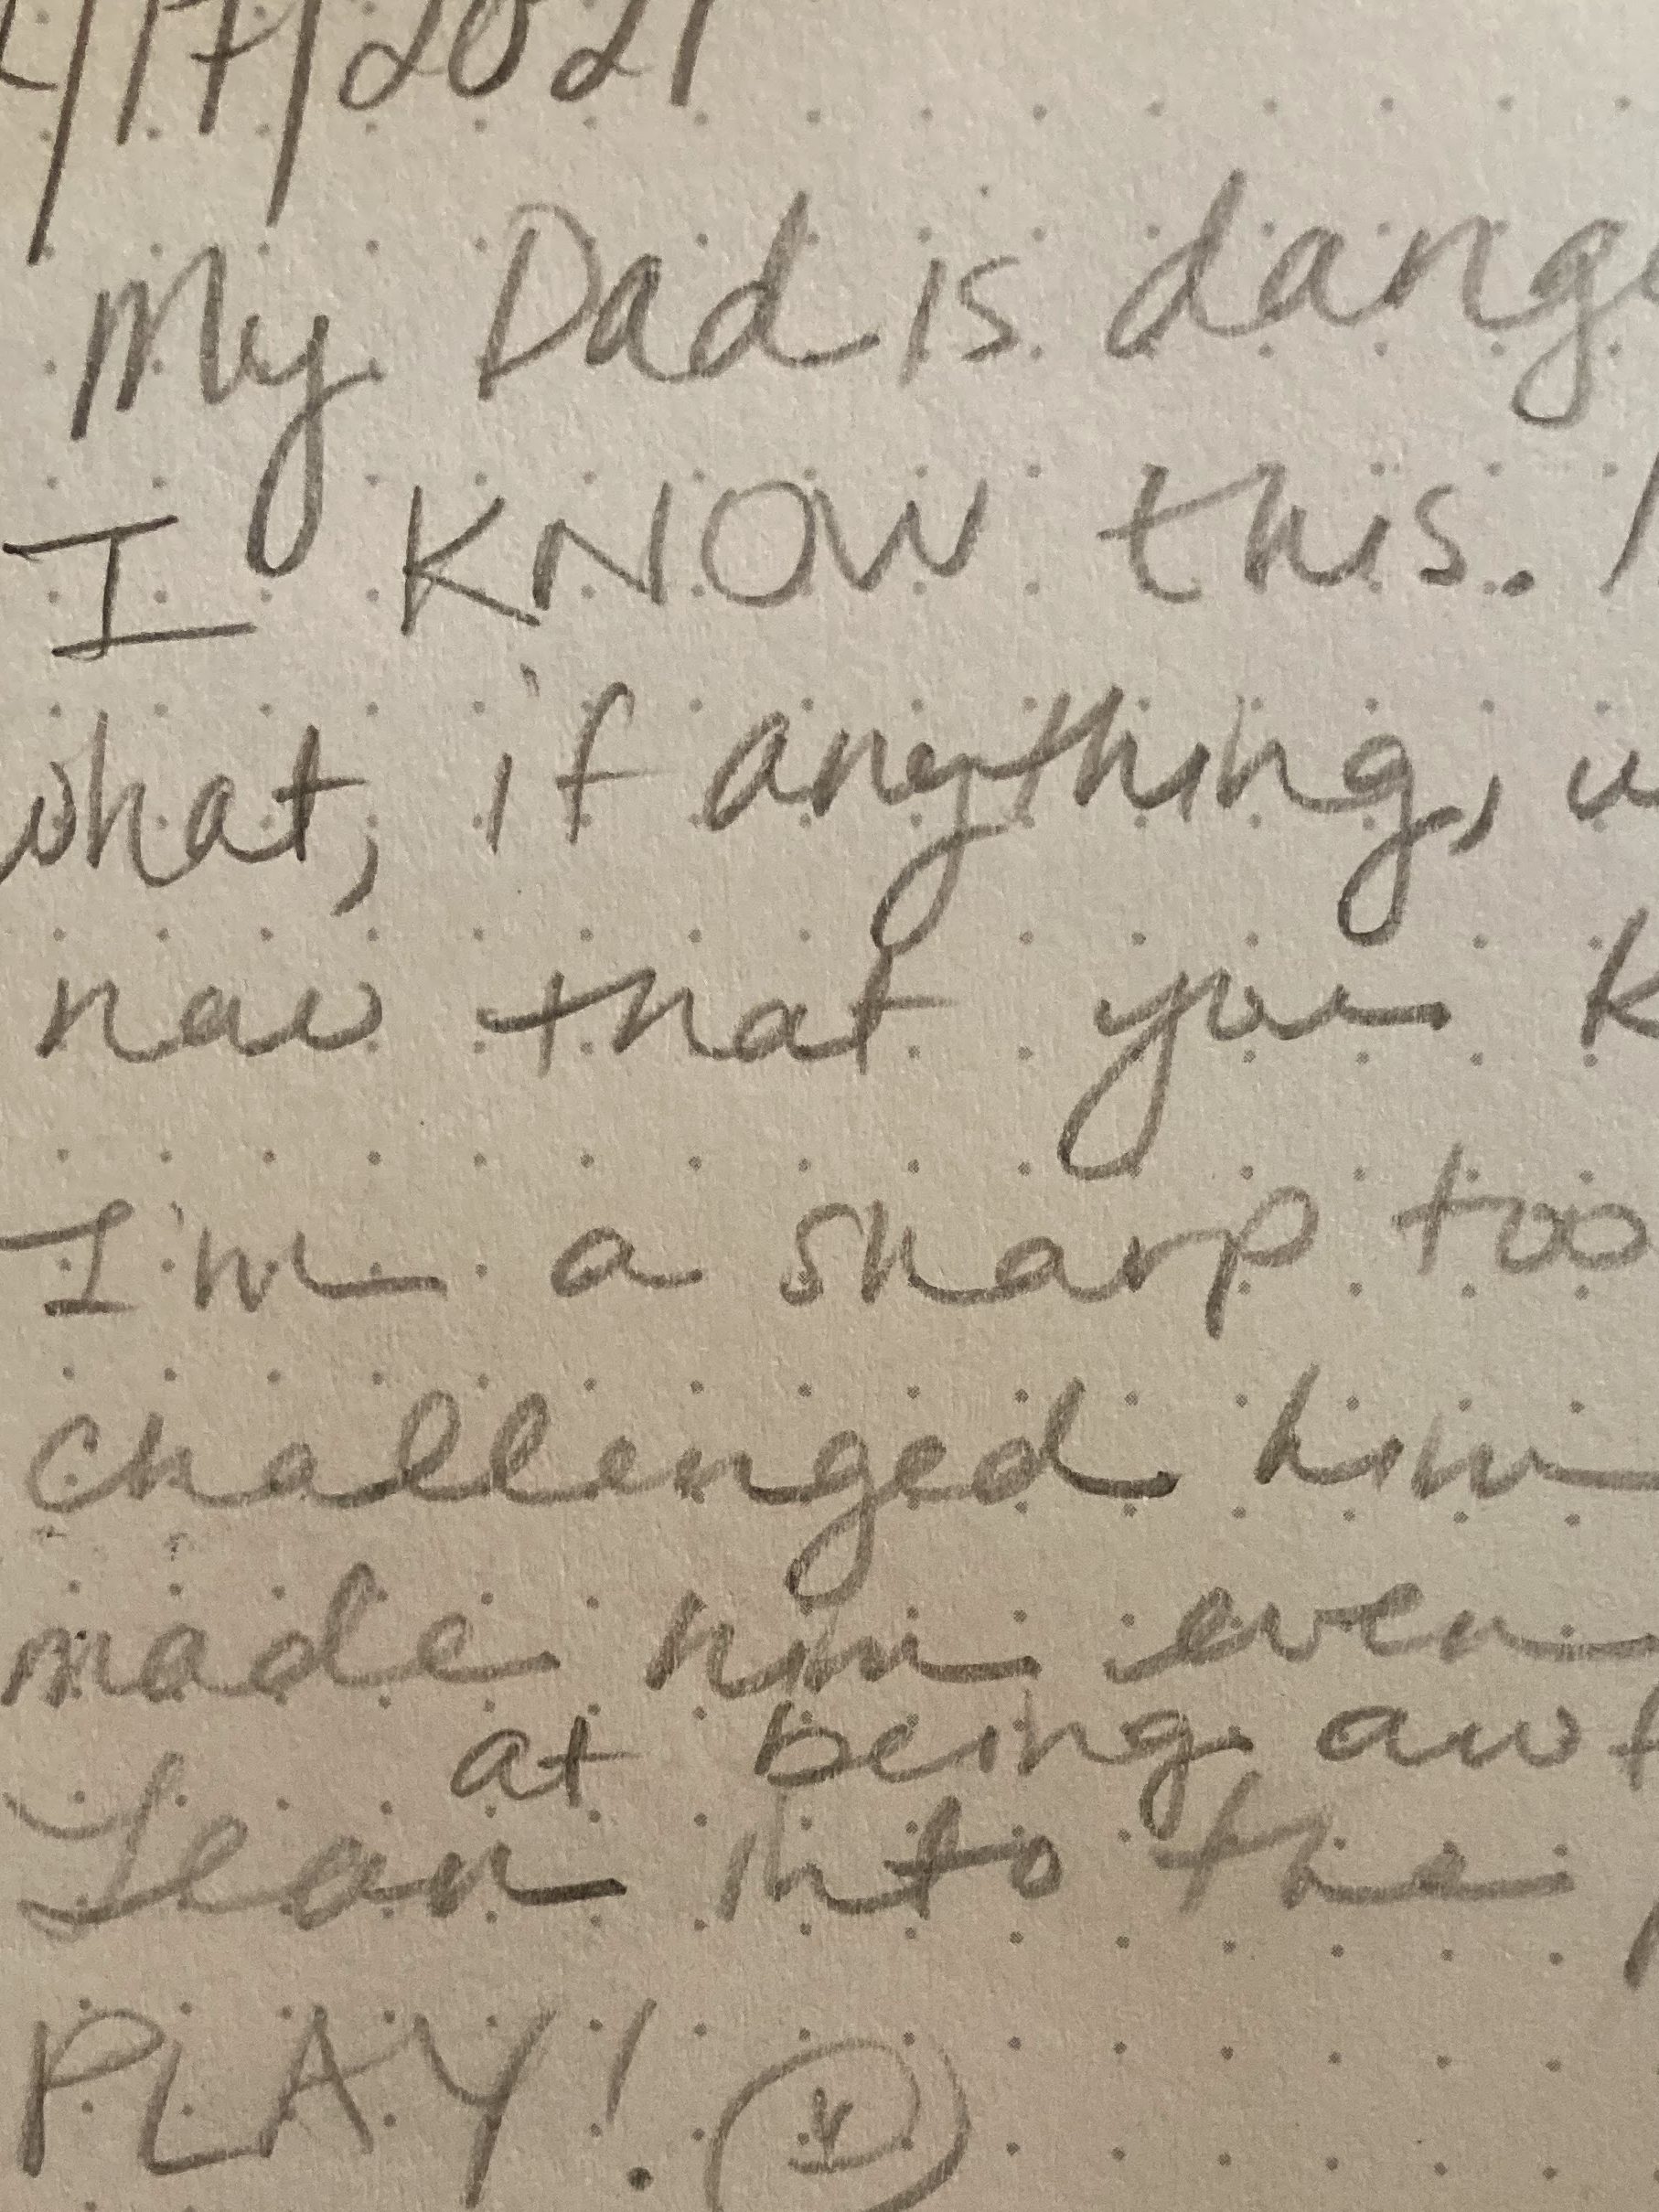 /17/2021
My Dad is dang
I KNOW this.
what, if anything,
now that you k
I'm a sharp too
challenged him
made him even
at being awf
Lean into the
PLAY!